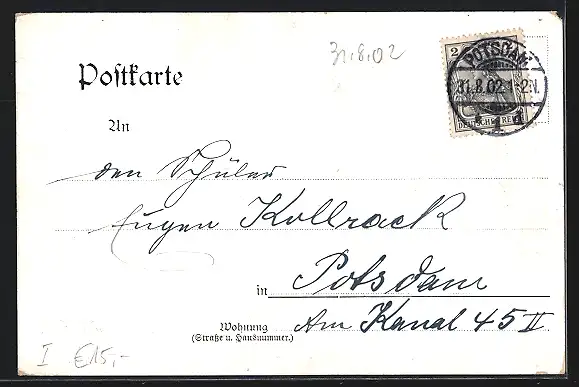 31.8.02
2
POTSDAM
31.8.02.1-2N.
1 d
DEUTSCHES REICH
Postkarte
An
den Schüler
Eugen Kollrack
in Potsdam
Wohnung Am Kanal 45 II
(Straße u. Hausnummer.)
I €15,-